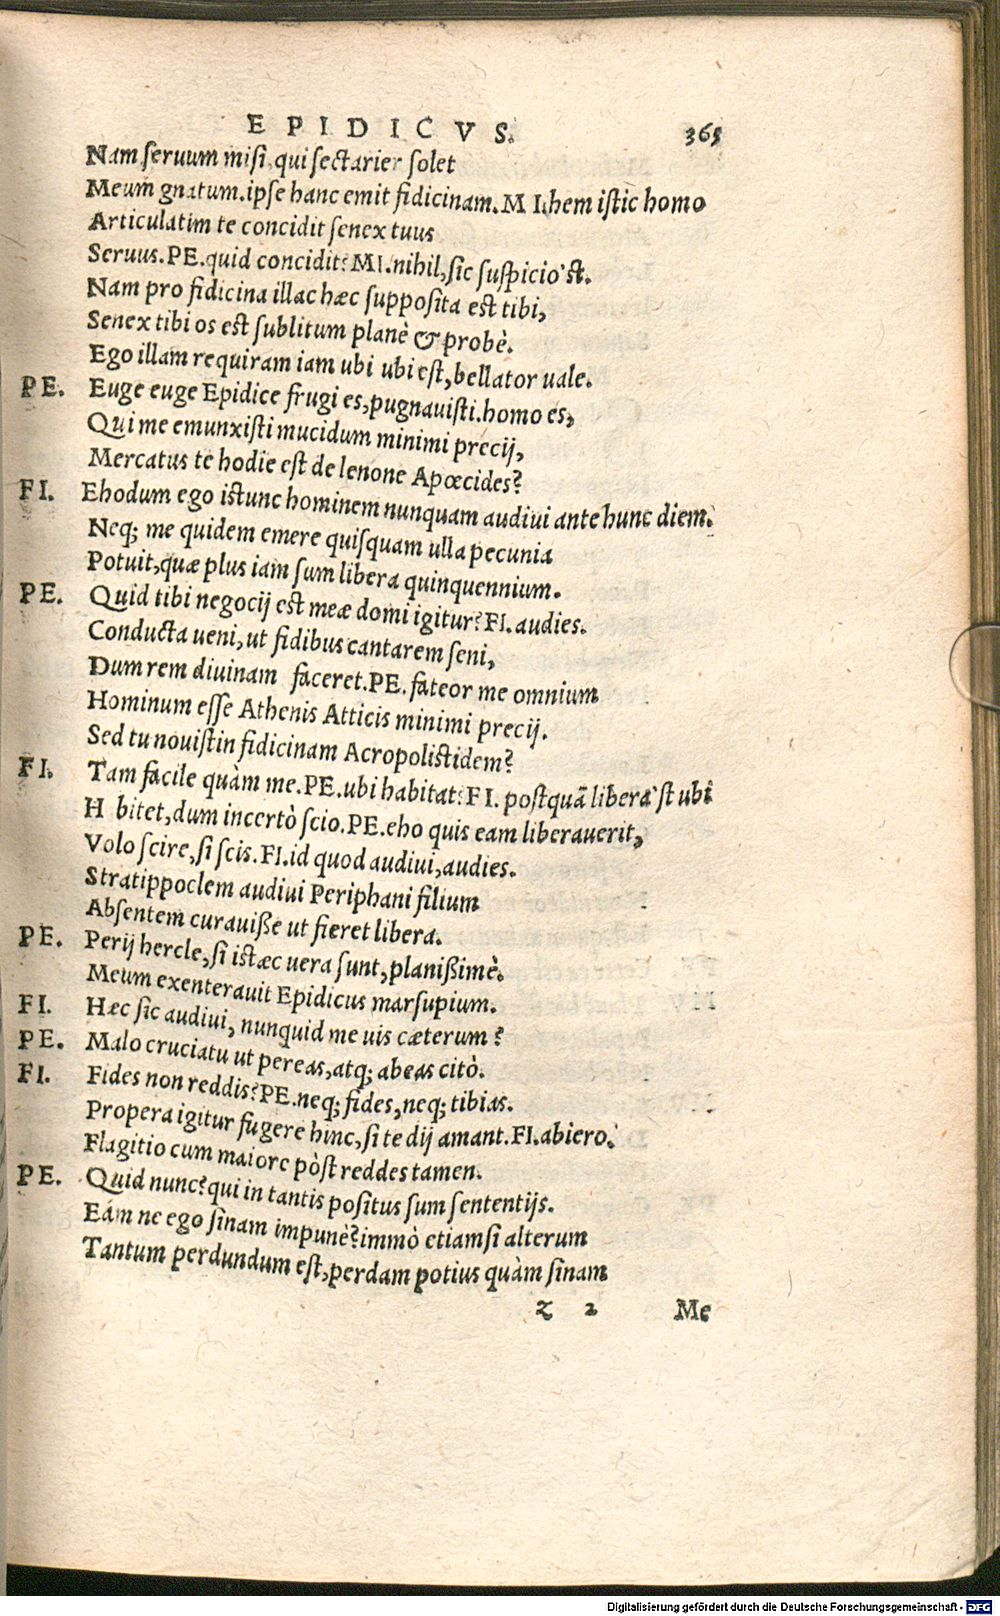 EPIDICVS. 365
Nam seruum misi, qui sectarier solet
Meum gnatum. ipse hanc emit fidicinam. M I. hem istic homo
Articulatim te concidit senex tuus
Seruus. PE. quid concidit? MI. nihil, sic suspicio'st.
Nam pro fidicina illac hæc supposita est tibi,
Senex tibi os est sublitum planè & probè.
Ego illam requiram iam ubi ubi est, bellator uale.
PE. Euge euge Epidice frugi es, pugnauisti. homo es,
Qui me emunxisti mucidum minimi precij,
Mercatus te hodie est de lenone Apœcides?
FI. Ehodum ego istunc hominem nunquam audiui ante hunc diem.
Neq; me quidem emere quisquam ulla pecunia
Potuit, quæ plus iam sum libera quinquennium.
PE. Quid tibi negocij est meæ domi igitur? FI. audies.
Conducta ueni, ut fidibus cantarem seni,
Dum rem diuinam faceret. PE. fateor me omnium
Hominum esse Athenis Atticis minimi precij.
Sed tu nouistin fidicinam Acropolistidem?
FI. Tam facile quàm me. PE. ubi habitat? FI. postquã libera'st ubi
H bitet, dum incertò scio. PE. eho quis eam liberauerit,
Volo scire, si scis. FI. id quod audiui, audies.
Stratippoclem audiui Periphani filium
Absentem curauiße ut fieret libera.
PE. Perij hercle, si istæc uera sunt, planißimè.
Meum exenterauit Epidicus marsupium.
FI. Hæc sic audiui, nunquid me uis cæterum?
PE. Malo cruciatu ut pereas, atq; abeas citò.
FI. Fides non reddis? PE. neq; fides, neq; tibias.
Propera igitur fugere hinc, si te dij amant. FI. abiero.
Flagitio cum maiore pòst reddes tamen.
PE. Quid nunc? qui in tantis positus sum sententijs.
Eam ne ego sinam impunè? immò etiamsi alterum
Tantum perdundum est, perdam potius quàm sinam
z 2 Me
Digitalisierung gefördert durch die Deutsche Forschungsgemeinschaft - DFG